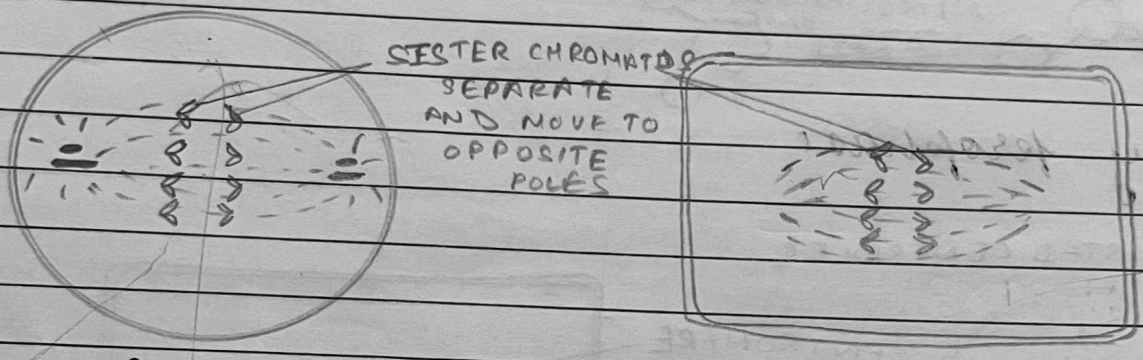 SISTER CHROMATIDS
SEPARATE
AND MOVE TO
OPPOSITE
POLES